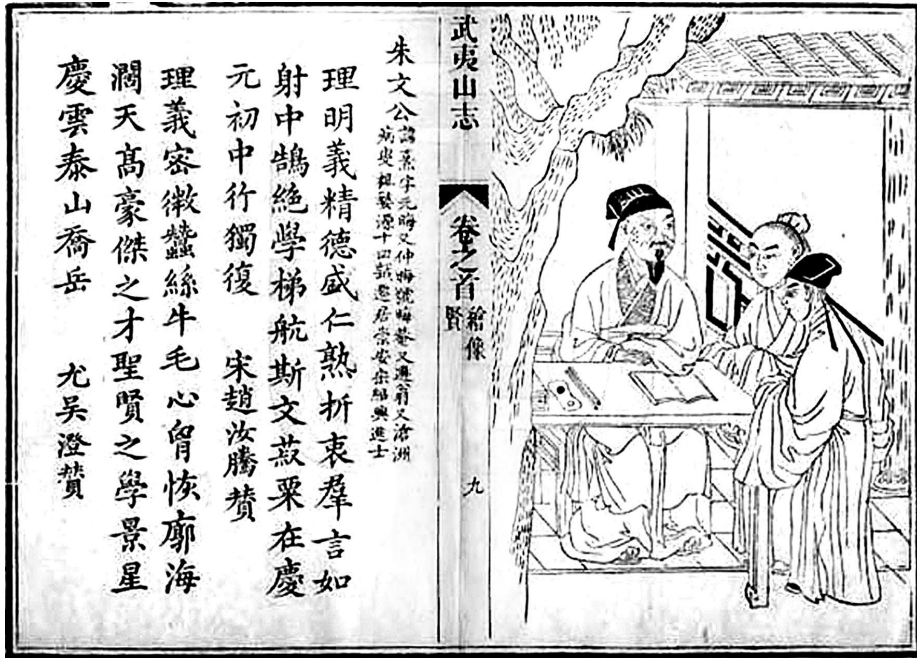 武夷山志
卷之首
繪像
賢
九
朱文公
諱熹字元晦又仲晦號晦菴又遯翁又滄洲
病叟祖婺源十四歲遷居崇安宋紹興進士
理明義精德盛仁熟折衷羣言如
射中鵠絕學梯航斯文菽粟在慶
元初中行獨復　宋趙汝騰贊
理義密微蠶絲牛毛心胷恢廓海
濶天髙豪傑之才聖賢之學景星
慶雲泰山喬岳　尤吳澄贊